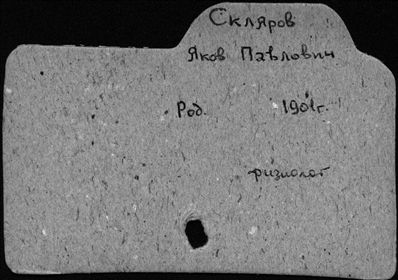 Скляров
Яков Павлович
Род. 1901г.
физиолог